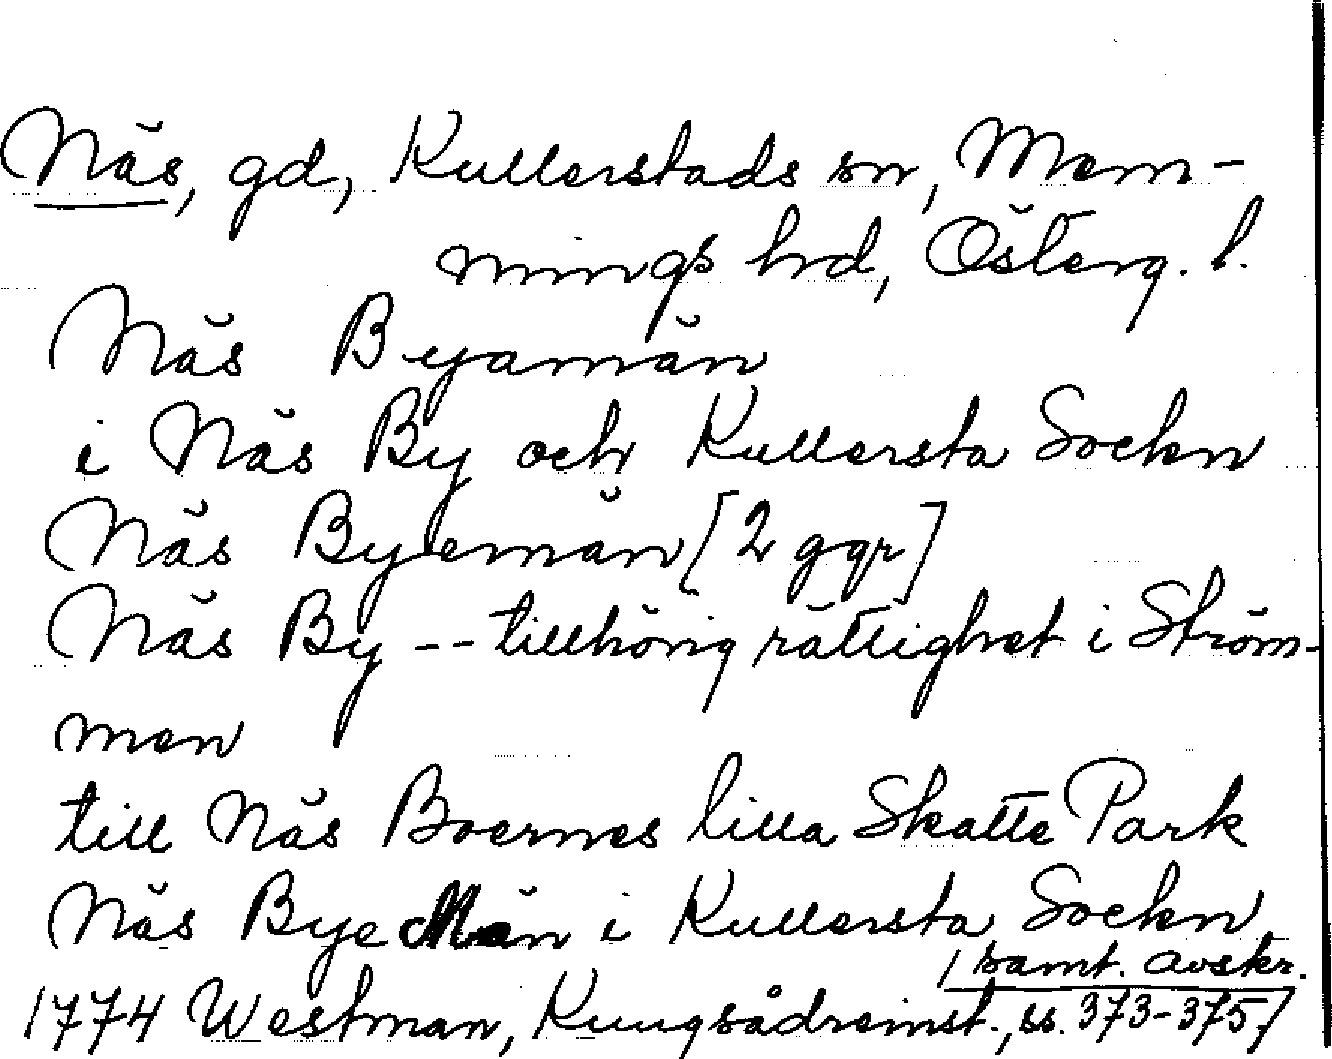 Näs, gd, Kullerstads sn, Mem-
mings hd, Österg. l.
Näs Byamän
i Näs By och Kullersta Sockn
Näs Byemän [2 ggr]
Näs By -- tillhörig rättighet i Ström-
men
till Näs Boernes lilla Skatte Park
Näs Bye Män i Kullersta Sockn
/ samt. avskr.
1774 Westman, Kungsådreinst., ss. 373-375/